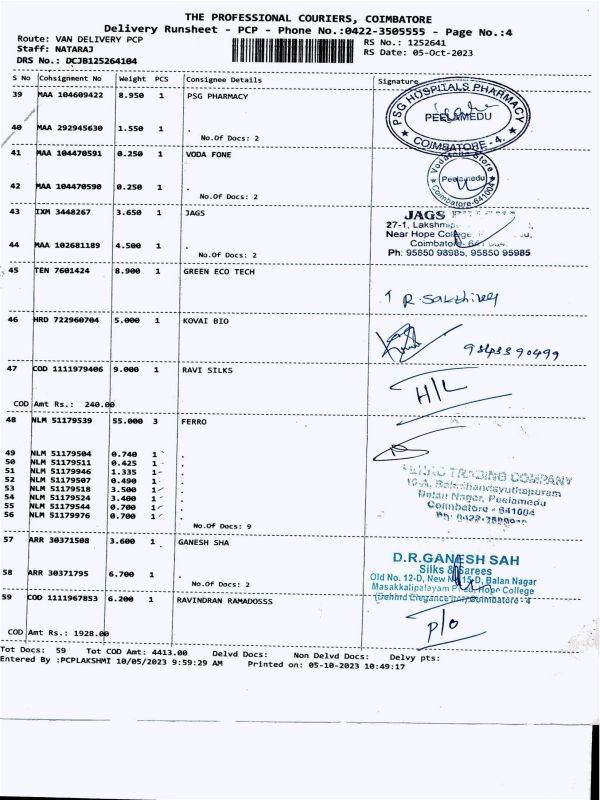 THE PROFESSIONAL COURIERS, COIMBATORE
Delivery Runsheet - PCP - Phone No.:0422-3505555 - Page No.:4
Route: VAN DELIVERY PCP
RS No.: 1252641
Staff: NATARAJ
RS Date: 05-Oct-2023
DRS No.: DCJB125264104
S No Cohsignment No Weight PCS Consignee Details Signature
39 MAA 104609422 8.950 1 PSG PHARMACY
PSG HOSPITALS PHARMACY
PEELAMEDU
COIMBATORE - 4.
40 MAA 292945630 1.550 1 .
No.Of Docs: 2
41 MAA 104470591 0.250 1 VODA FONE
Vodafone Store
Peelamedu
Coimbatore-641004
42 MAA 104470590 0.250 1 .
No.Of Docs: 2
43 IXM 3448267 3.650 1 JAGS
JAGS
27-1, Lakshmi
Near Hope College,
Coimbatore- 641 004.
Ph: 95850 98985, 95850 95985
44 MAA 102681189 4.500 1 .
No.Of Docs: 2
45 TEN 7601424 8.900 1 GREEN ECO TECH
R. Sakthivel
46 HRD 722960704 5.000 1 KOVAI BIO
47 COD 1111979406 9.000 1 RAVI SILKS
H/L
COD Amt Rs.: 240.00
48 NLM 51179539 55.000 3 FERRO
49 NLM 51179504 0.740 1 .
50 NLM 51179511 0.425 1 .
51 NLM 51179946 1.335 1 .
52 NLM 51179507 0.490 1 .
53 NLM 51179518 3.500 1 .
54 NLM 51179524 3.400 1 .
55 NLM 51179544 0.700 1 .
56 NLM 51179976 0.700 1 .
No.Of Docs: 9
TRADING COMPANY
10-A, Balathandayuthapuram
Balan Nagar, Peelamedu
Coimbatore - 641004
57 ARR 30371508 3.600 1 GANESH SHA
D.R.GANESH SAH
Silks & Sarees
Old No. 12-D, New No 15-D, Balan Nagar
Masakkalipalayam Road, Hope College
(Behind Elegance Inn) Coimbatore - 4
58 ARR 30371795 6.700 1 .
No.Of Docs: 2
59 COD 1111967853 6.200 1 RAVINDRAN RAMADOSSS
P/O
COD Amt Rs.: 1928.00
Tot Docs: 59 Tot COD Amt: 4413.00 Delvd Docs: Non Delvd Docs: Delvy pts:
Entered By :PCPLAKSHMI 10/05/2023 9:59:29 AM Printed on: 05-10-2023 10:49:17